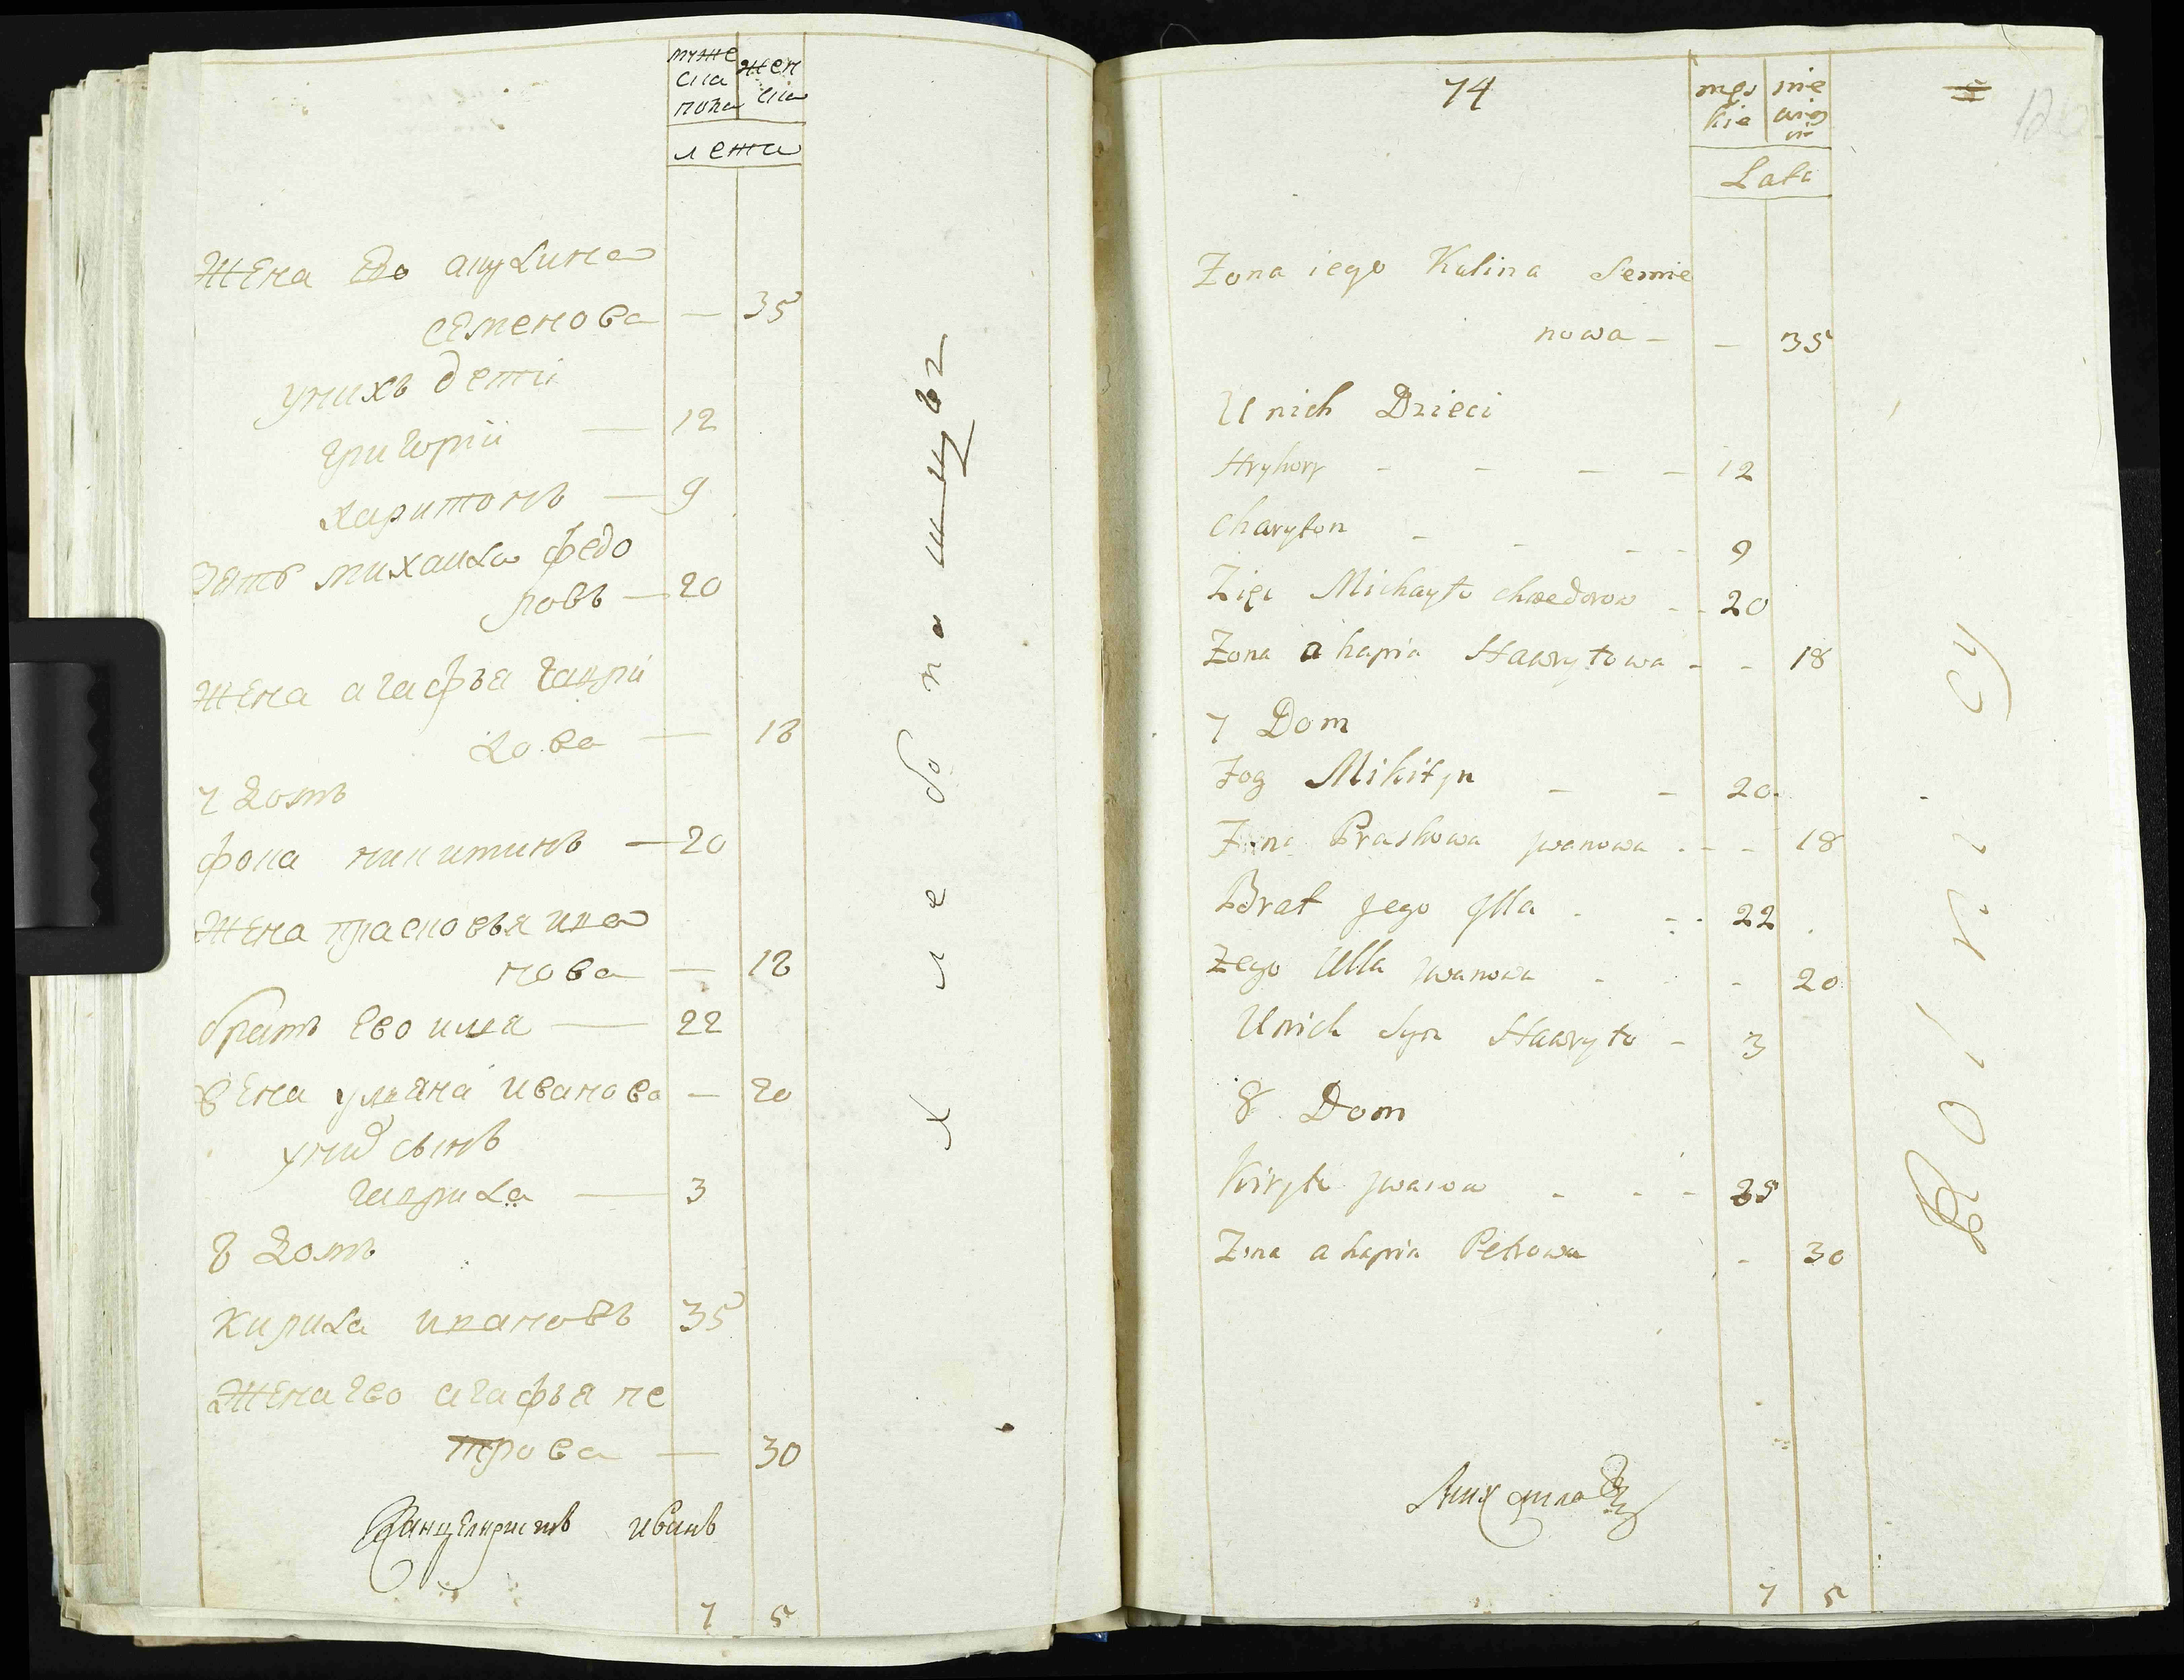 муже
ска
пола
жен
ска
лета
Жена Ево акулина
семенова — 35
уних детй
григорiй — 12
харитонъ — 9
Зять михаила федо
ровъ — 20
Жена агафья гаври
лова — 18
7 домъ
фока никитинъ — 20
Жена прасковья ива
нова — 18
братъ Ево илья — 22
Жена ульяна иванова — 20
уних сынъ
гаврила — 3
8 домъ
кирила ивановъ 35
Жена Его агафья пе
трова — 30
Канцеляристъ иванъ
7 5
хлебопашцы
74
męs
kie
nie
wieś
cie
Lata
Zona iego Kulina Semie
nowa - - 35
U nich Dzieci
Hryhory - - - - 12
Charyton - - - - 9
Zięć Michayło Chwedorow - - 20
Zona ahapia Hawryłowa - - 18
7 Dom
Fog Mikityn - - 20
Zona Praskowa Jwanowa - - - 18
Brat Jego Jlla - - - 22
Zego Ulla Jwanowa - - 20
Unich Syn Hawryło - 3
8 Dom
Kiryło Jwanow - - - 25
Zona ahapia Petrowa - 30
7 5
Rolnicy